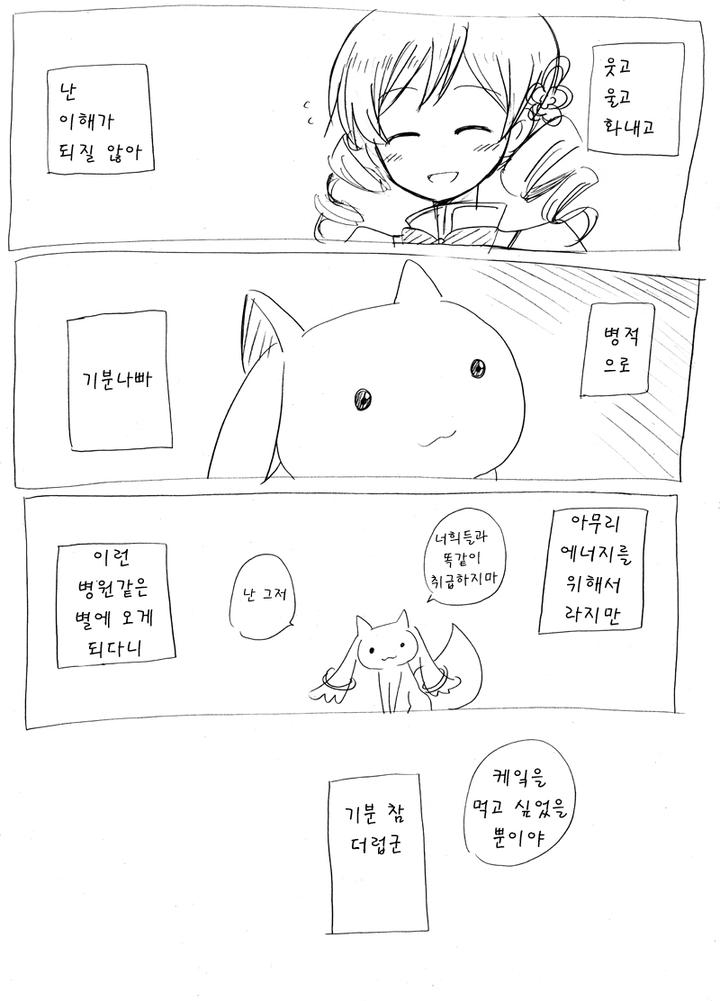 웃고
울고
화내고
난
이해가
되질 않아
병적
으로
기분나빠
아무리
에너지를
위해서
라지만
너희들과
똑같이
취급하지마
난 그저
이런
병원같은
별에 오게
되다니
케잌을
먹고 싶었을
뿐이야
기분 참
더럽군